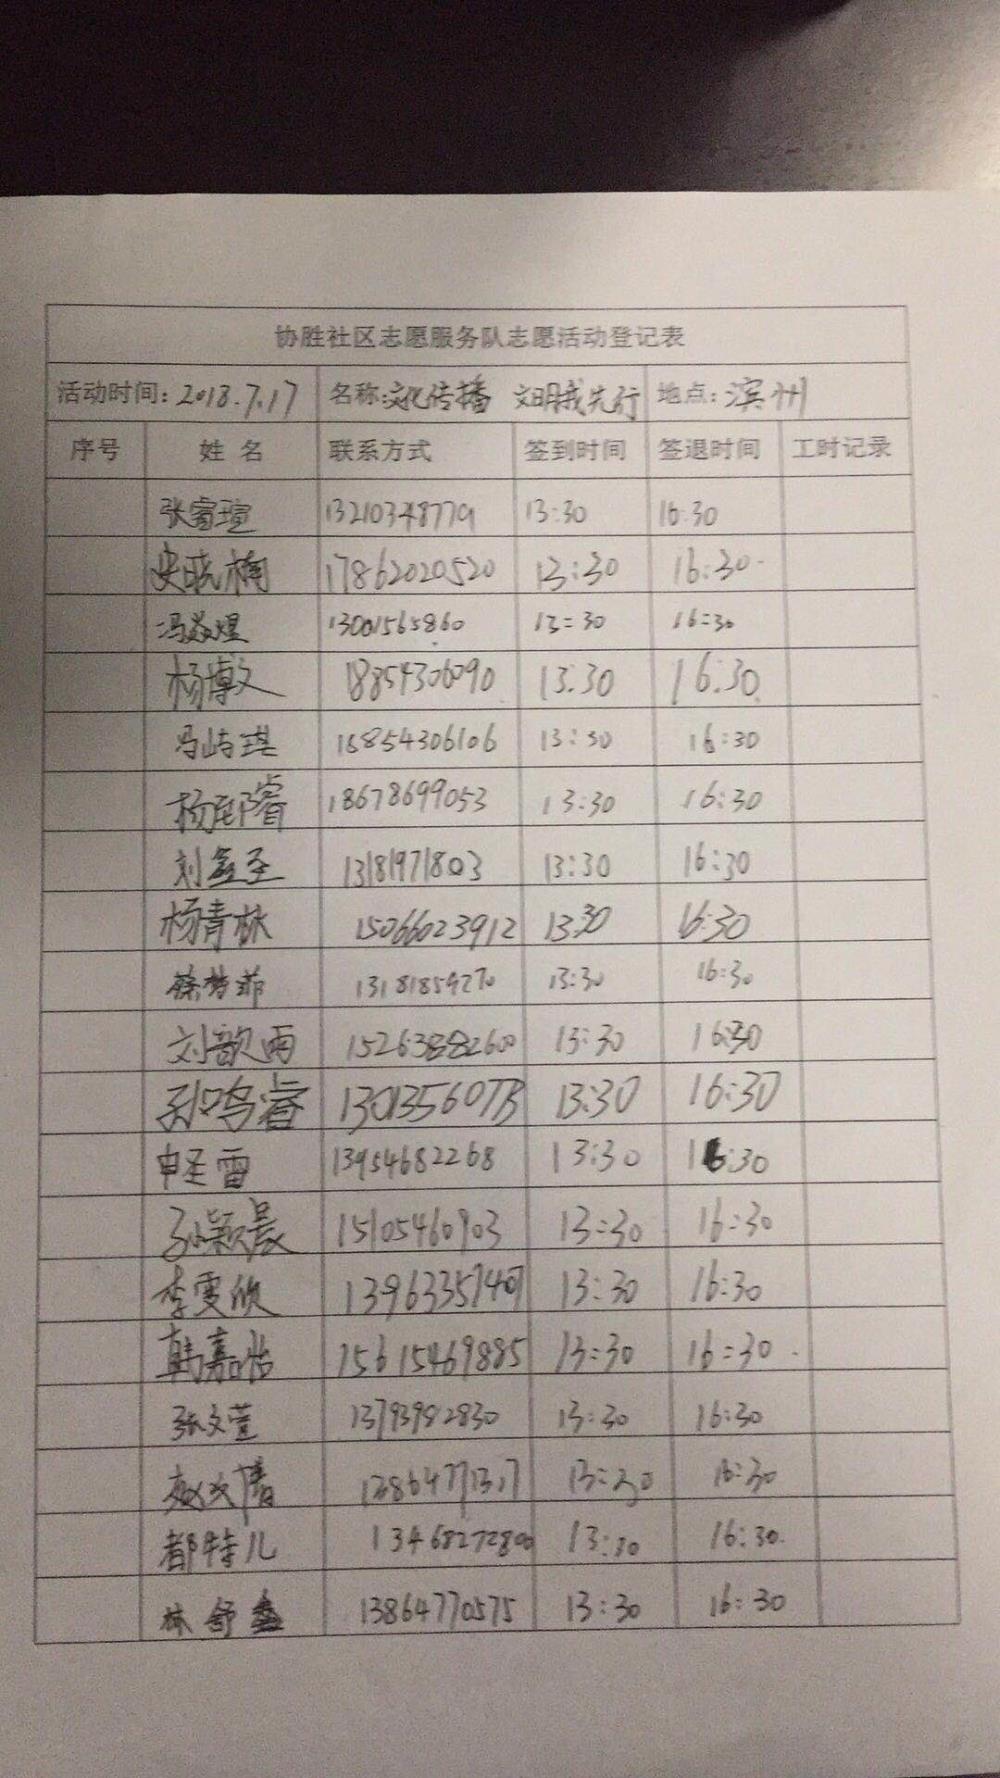 协胜社区志愿服务队志愿活动登记表
活动时间：2018.7.17 名称：文化传播 文明我先行 地点：滨州
序号 姓名 联系方式 签到时间 签退时间 工时记录
张睿瑄 13210348779 13:30 16:30
史晓楠 17862020520 13:30 16:30
冯焱煜 13001565860 13:30 16:30
杨博文 18854306090 13:30 16:30
马屿琪 16854306106 13:30 16:30
18678699053 13:30 16:30
刘鑫圣 13181971803 13:30 16:30
杨青林 15066023912 13:30 16:30
徐梦菲 13181859270 13:30 16:30
刘歆雨 15263882600 13:30 16:30
孙鸣睿 13:30 16:30
申圣雷 13954682268 13:30 16:30
孙颖晨 15105460903 13:30 16:30
李雯欣 13963357407 13:30 16:30
韩嘉怡 15615469885 13:30 16:30
张文萱 13793982830 13:30 16:30
赵文倩 13864771317 13:30 16:30
都特儿 13468272800 13:30 16:30
林舒 13864770575 13:30 16:30